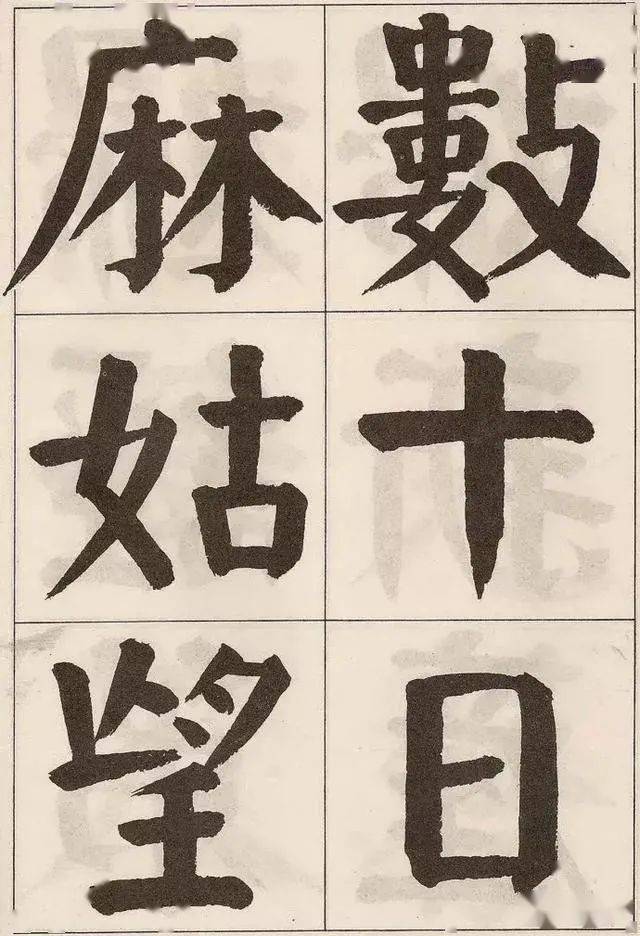 數十日
麻姑望